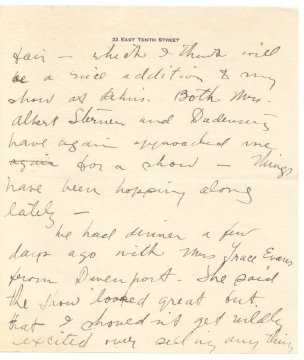 22 EAST TENTH STREET
fair – which I think will
be a nice addition to my
show at Fehin. Both Mrs.
Albert Sterner and Dudensing
have again approached me
again for a show – Things
have been hopping along
lately –
We had dinner a few
days ago with Mrs Grace Evans
from Davenport. She said
the show looked great but
that I shouldn't get wildly
excited over selling anything